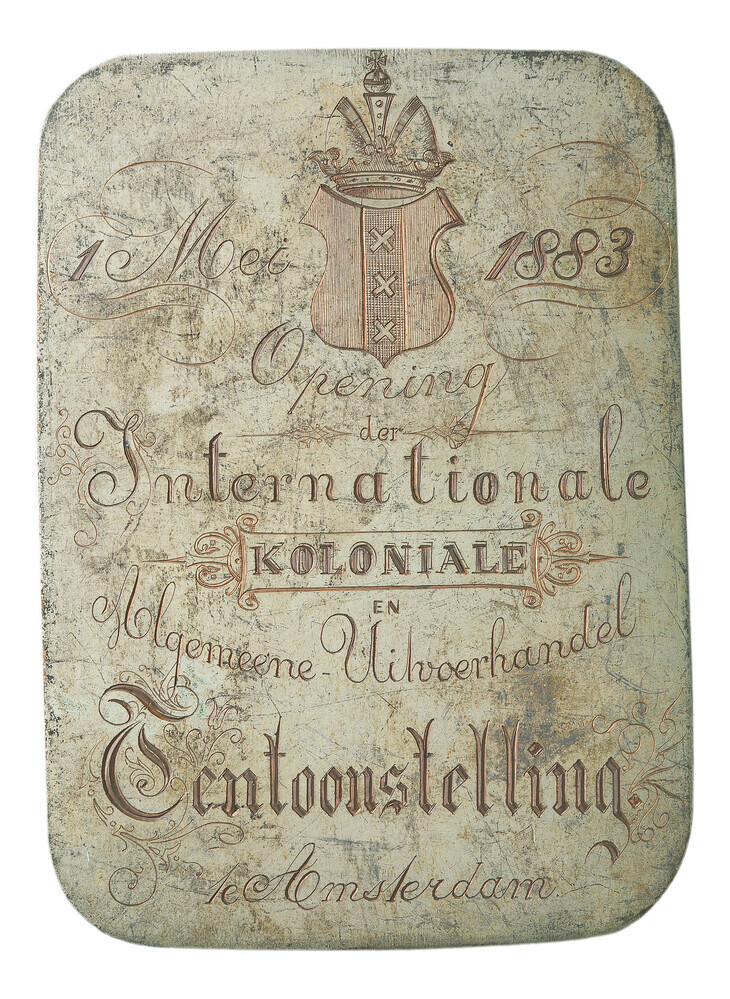 1 Mei 1883
Opening
der
Internationale
KOLONIALE
EN
Algemeene-Uitvoerhandel
Tentoonstelling.
te Amsterdam.